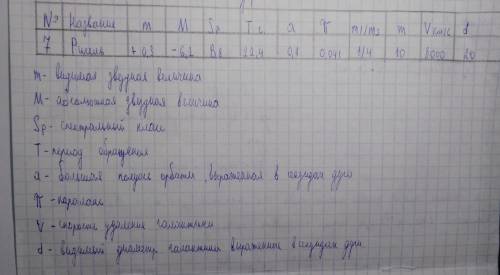 № Название m M Sp T г. a π m1/m2 m Vкм/с d
7 Ригель +0,3 -6,2 B8 22,4 0,1 0,041 1/4 10 2000 20
m - видимая звездная величина
M - абсолютная звездная величина
Sp - спектральный класс
T - период обращения
a - большая полуось орбиты, выраженная в секундах дуги
π - параллакс
V - скорость удаления галактики
d - видимый диаметр галактики выраженные в секундах дуги